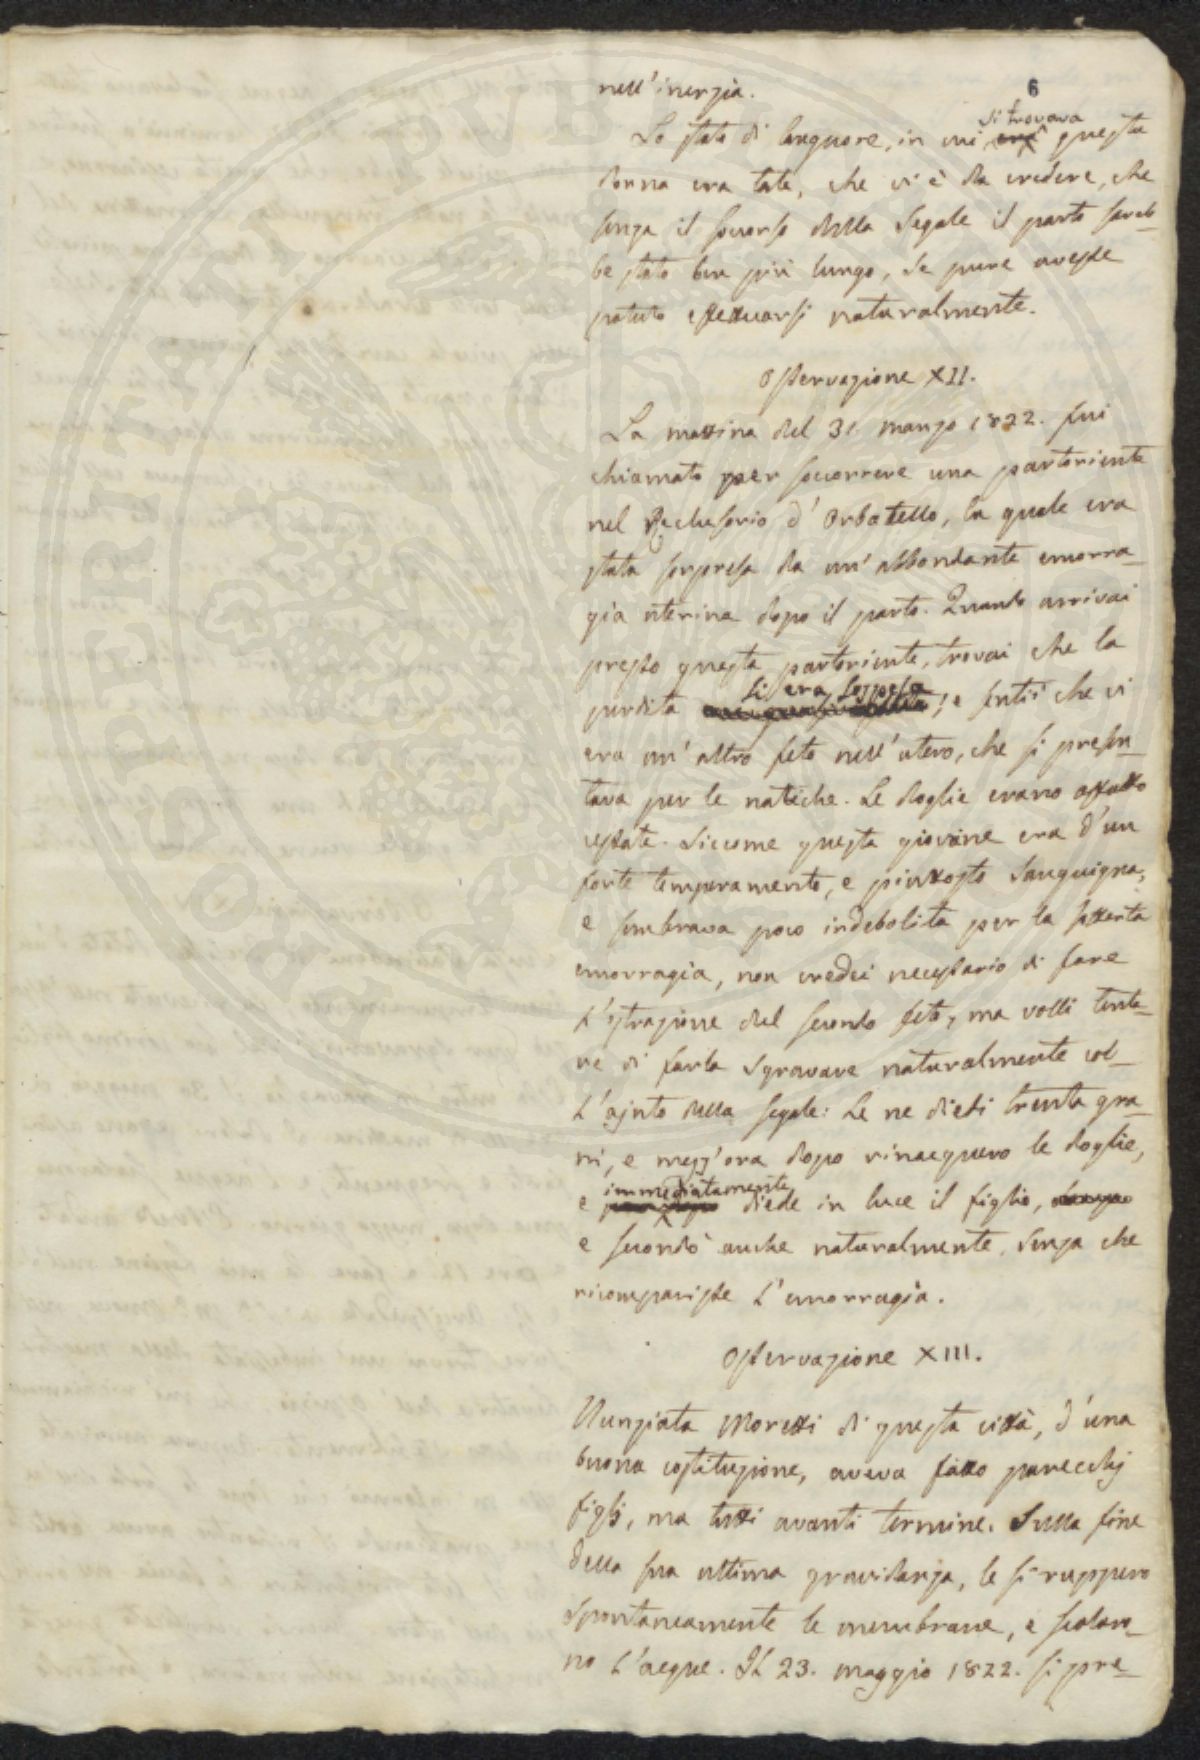 6
nell'inerzia.
Lo stato di languore, in cui si trovava questa
donna era tale, che vi è da credere, che
senza il soccorso della Segale il parto sareb-
be stato ben più lungo, se pure avesse
potuto effettuarsi naturalmente.
Osservazione XII.
La mattina del 31. marzo 1822. fui
chiamato per soccorrere una partoriente
nel Reclusorio d'Orbatello, la quale era
stata sorpresa da un'abbondante emorra-
gia uterina dopo il parto. Quando arrivai
presso questa partoriente, trovai che la
perdita si era sospesa; e sentii che vi
era un'altro feto nell'utero, che si presen-
tava per le natiche. Le doglie erano affatto
cessate. Siccome questa giovine era d'un
forte temperamento, e piuttosto sanguigna,
e sembrava poco indebolita per la sofferta
emorragia, non credei necessario di fare
l'estrazione del secondo feto, ma volli tenta-
re di farla sgravare naturalmente col-
l'ajuto della segale: Le ne diedi trenta gra-
ni, e mezz'ora dopo rinacquero le doglie,
e immediatamente diede in luce il figlio,
e secondò anche naturalmente, senza che
ricomparisse l'emorragia.
Osservazione XIII.
Nunziata Moretti di questa città, d'una
buona costituzione, aveva fatto parecchj
figlj, ma tutti avanti termine. Sulla fine
della sua ultima gravidanza, le si ruppero
spontaneamente le membrane, e scolaro-
no l'acque. Il 23. maggio 1822. si pre-